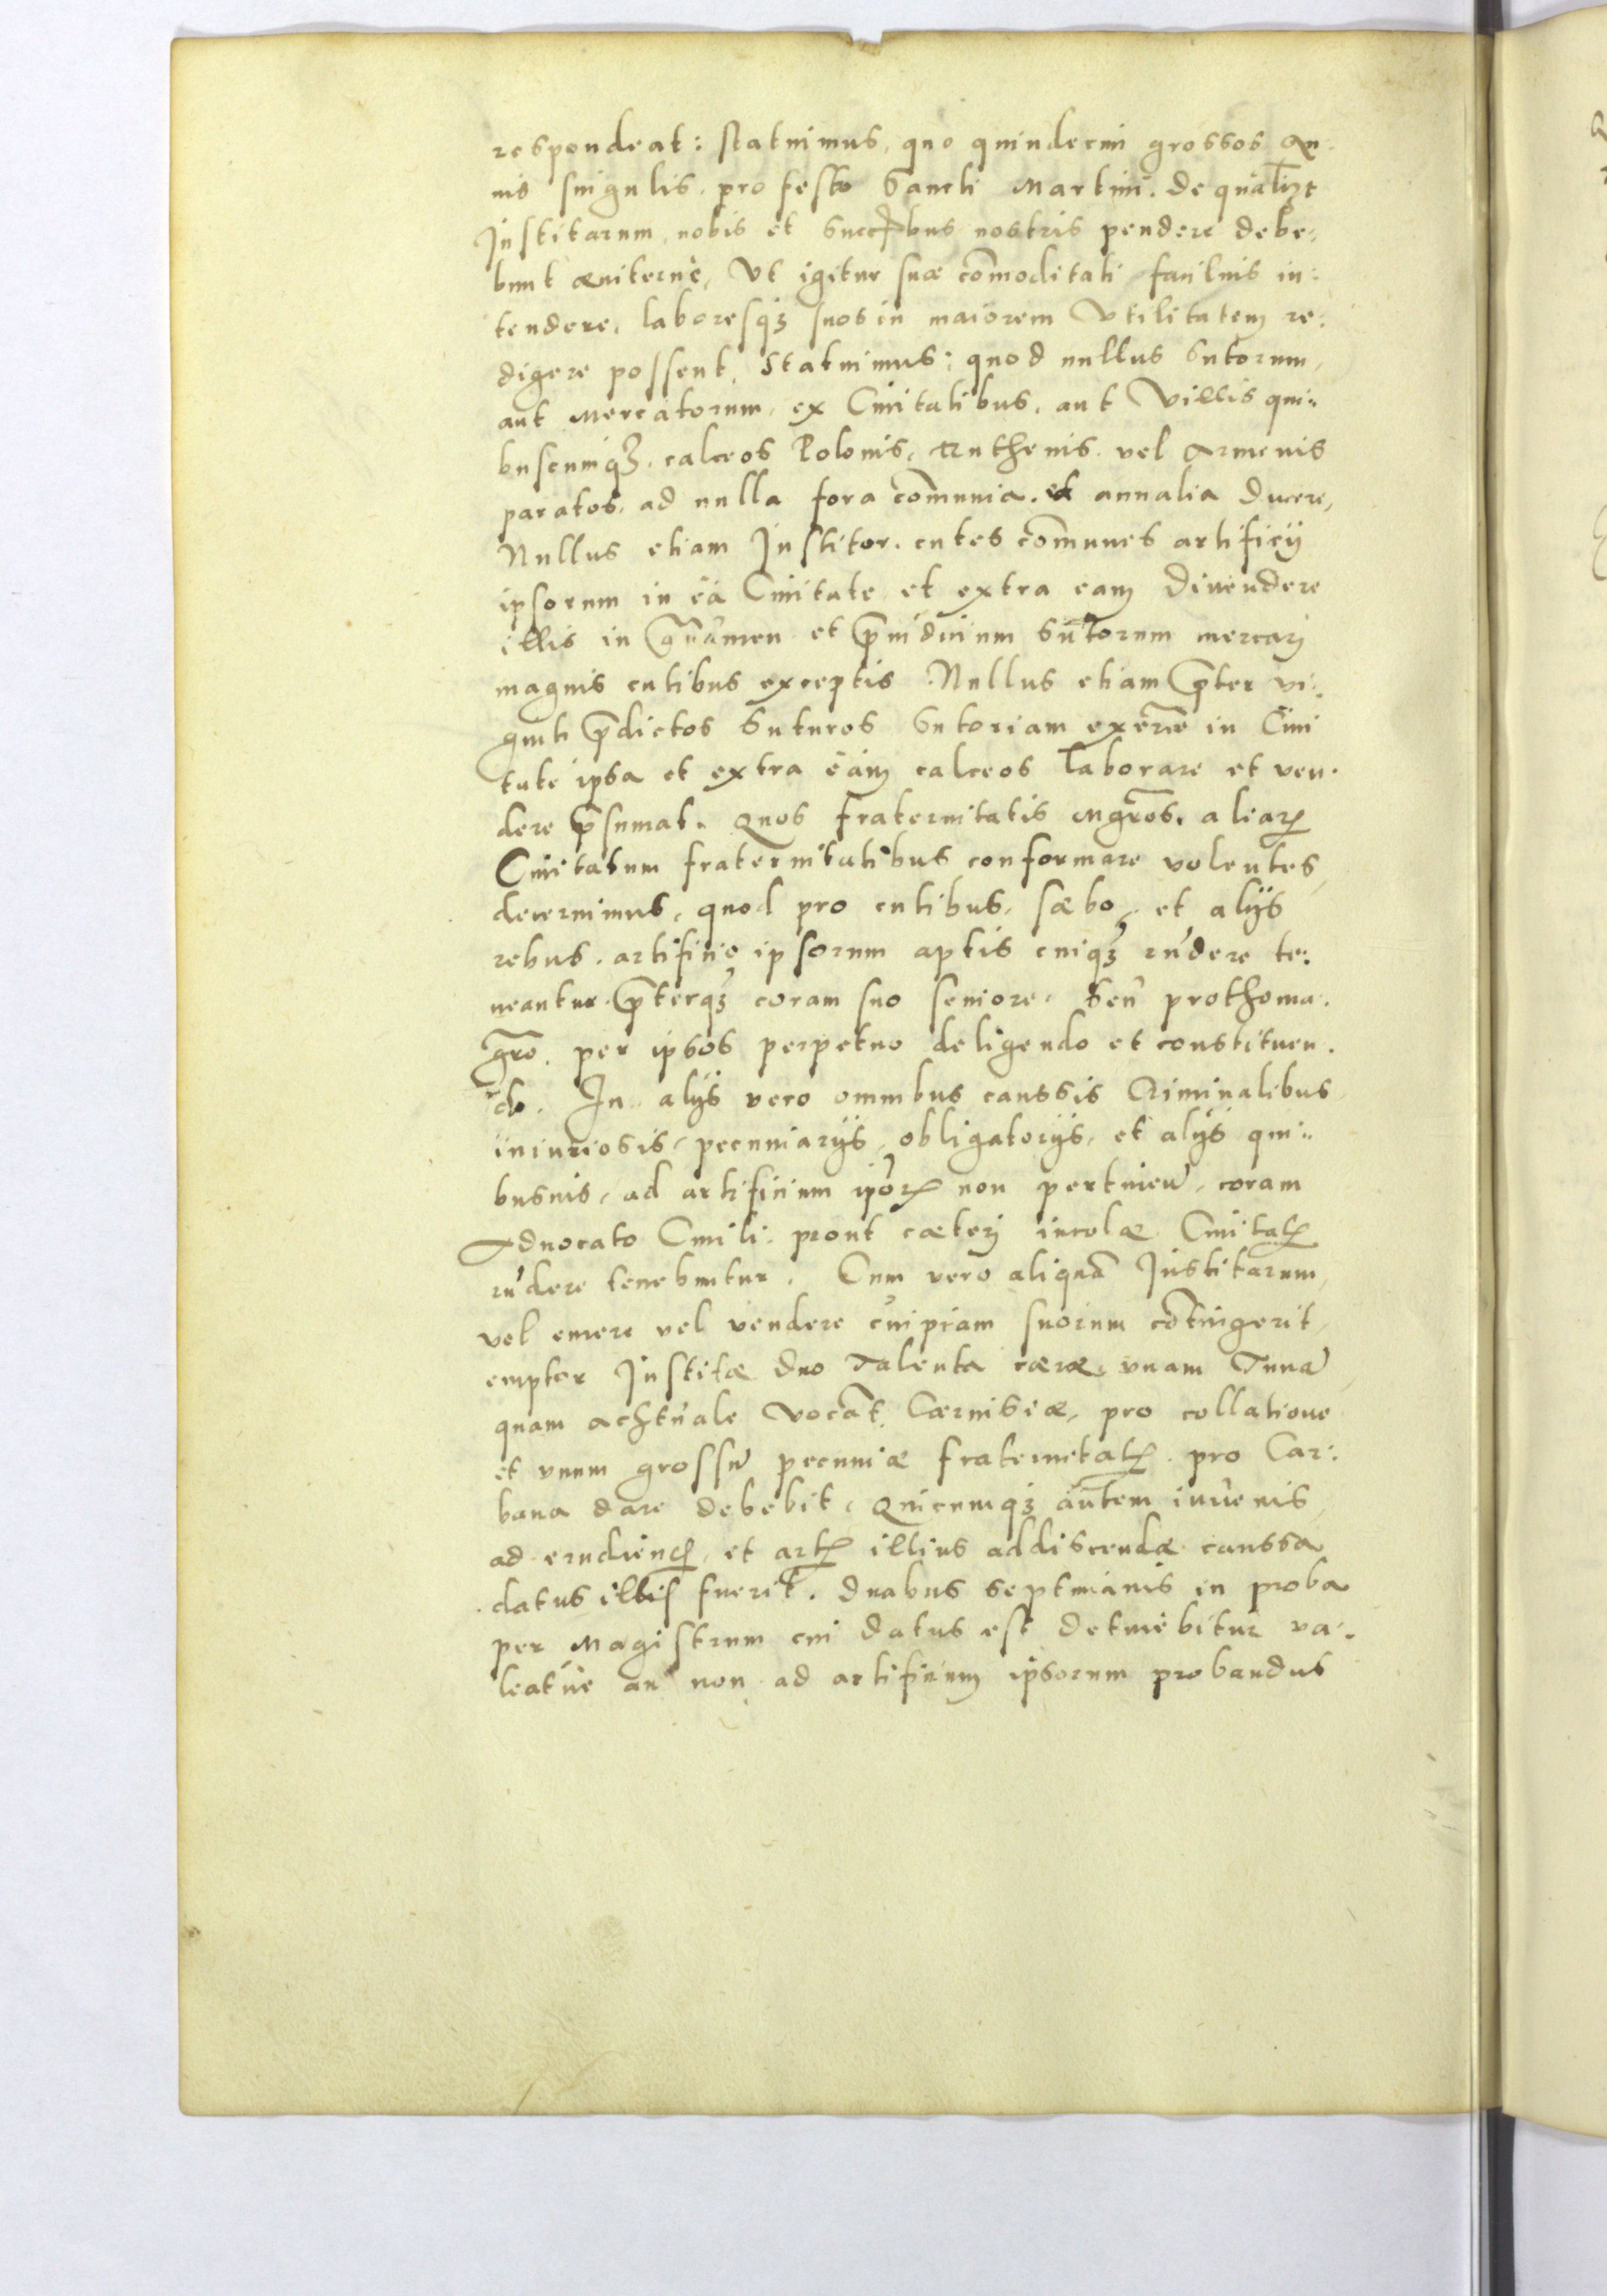 respondeat: statuimus, quo quindecim grossos An:
nis singulis, pro festo Sancti Martini. de qualibet
Institarum, nobis et succrbus nostris pendere debe:
bunt æuiterne, Vt igitur suæ com̄oditati facilius in:
tendere, laboresqꝫ suos in maiorem Vtilitatem re:
digere possent, Statuimus: quod nullus Sutorum,
aut Mercatorum, ex Ciuitatibus, aut Villis qui:
buscumqꝫ, calceos Polonis, Ruthenis vel Armenis
paratos, ad nulla fora com̄unia, et annalia ducere,
Nullus etiam Institor. cutes com̄unes artificij
ipsorum in ea Ciuitate et extra eam diuendere
illis in grauamen et p̄iudicium Sutorum mercarj
magnis cutibus exceptis. Nullus etiam p̄ter vi:
ginti p̄dictos Sutores Sutoriam exerce in Ciui
tate ipsa et extra eam calceos laborare et ven:
dere p̄sumat. Quos fraternitatis Mgr̄os. aliarꝝ
Ciuitatum fraternitatibus conformare volentes,
decernimus, quod pro cutibus, sæbo, et alijs
rebus, artificio ipsorum aptis cuiqꝫ rn̄dere te:
neantur. p̄terqꝫ coram suo seniore, Seu prothoma:
gr̄o. per ipsos perpetuo deligendo et constituen:
do. In alijs vero omnibus caussis Criminalibus,
iniuriosis, pecuniarijs, obligatorijs, et alijs qui:
busuis, ad artificium ip̄orꝝ non pertineñ, coram
Aduocato Ciuili. prout cæterj incolæ Ciuitatꝭ
rn̄dere tenebuntur. Cum vero aliquā Institarum,
vel emere vel vendere cuipiam suorum cōtingerit,
emptor Institæ duo Talenta ceræ, vnam Tunā,
quam achtuale vocant, Cæruisiæ, pro collatione
et vnum grossū pecuniæ fraternitatꝭ pro Car:
bana dare debebit, Quicumqꝫ autem iuuenis,
ad erudiendꝭ, et artꝭ illius addiscendæ caussa
datus illis fuerit. duabus septimanis in proba
per Magistrum cui datus est detinebitur va:
leatue an non ad artificium ipsorum probandus